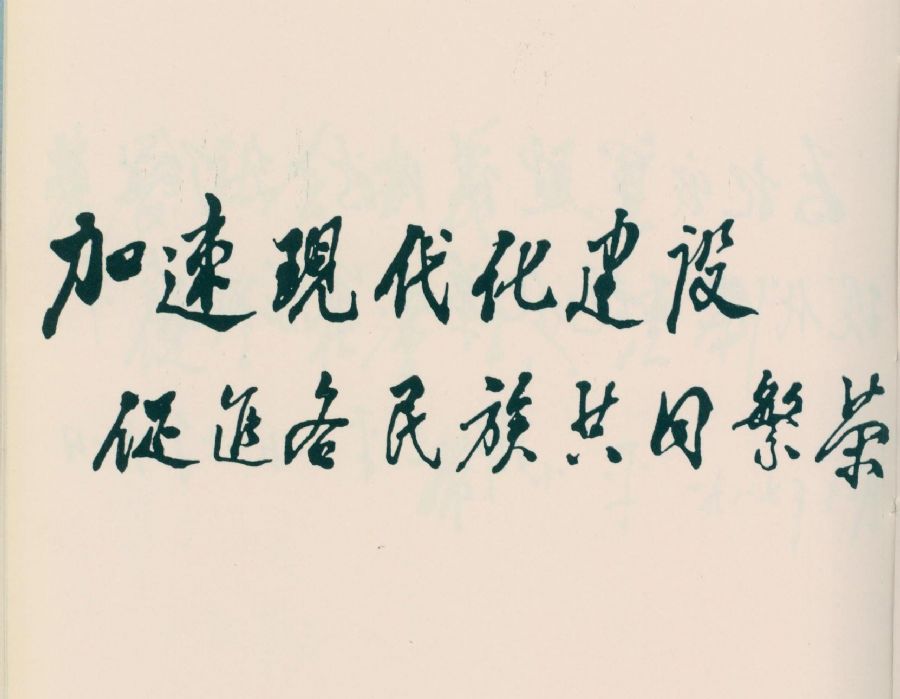 加速現代化建设
促進各民族共同繁荣